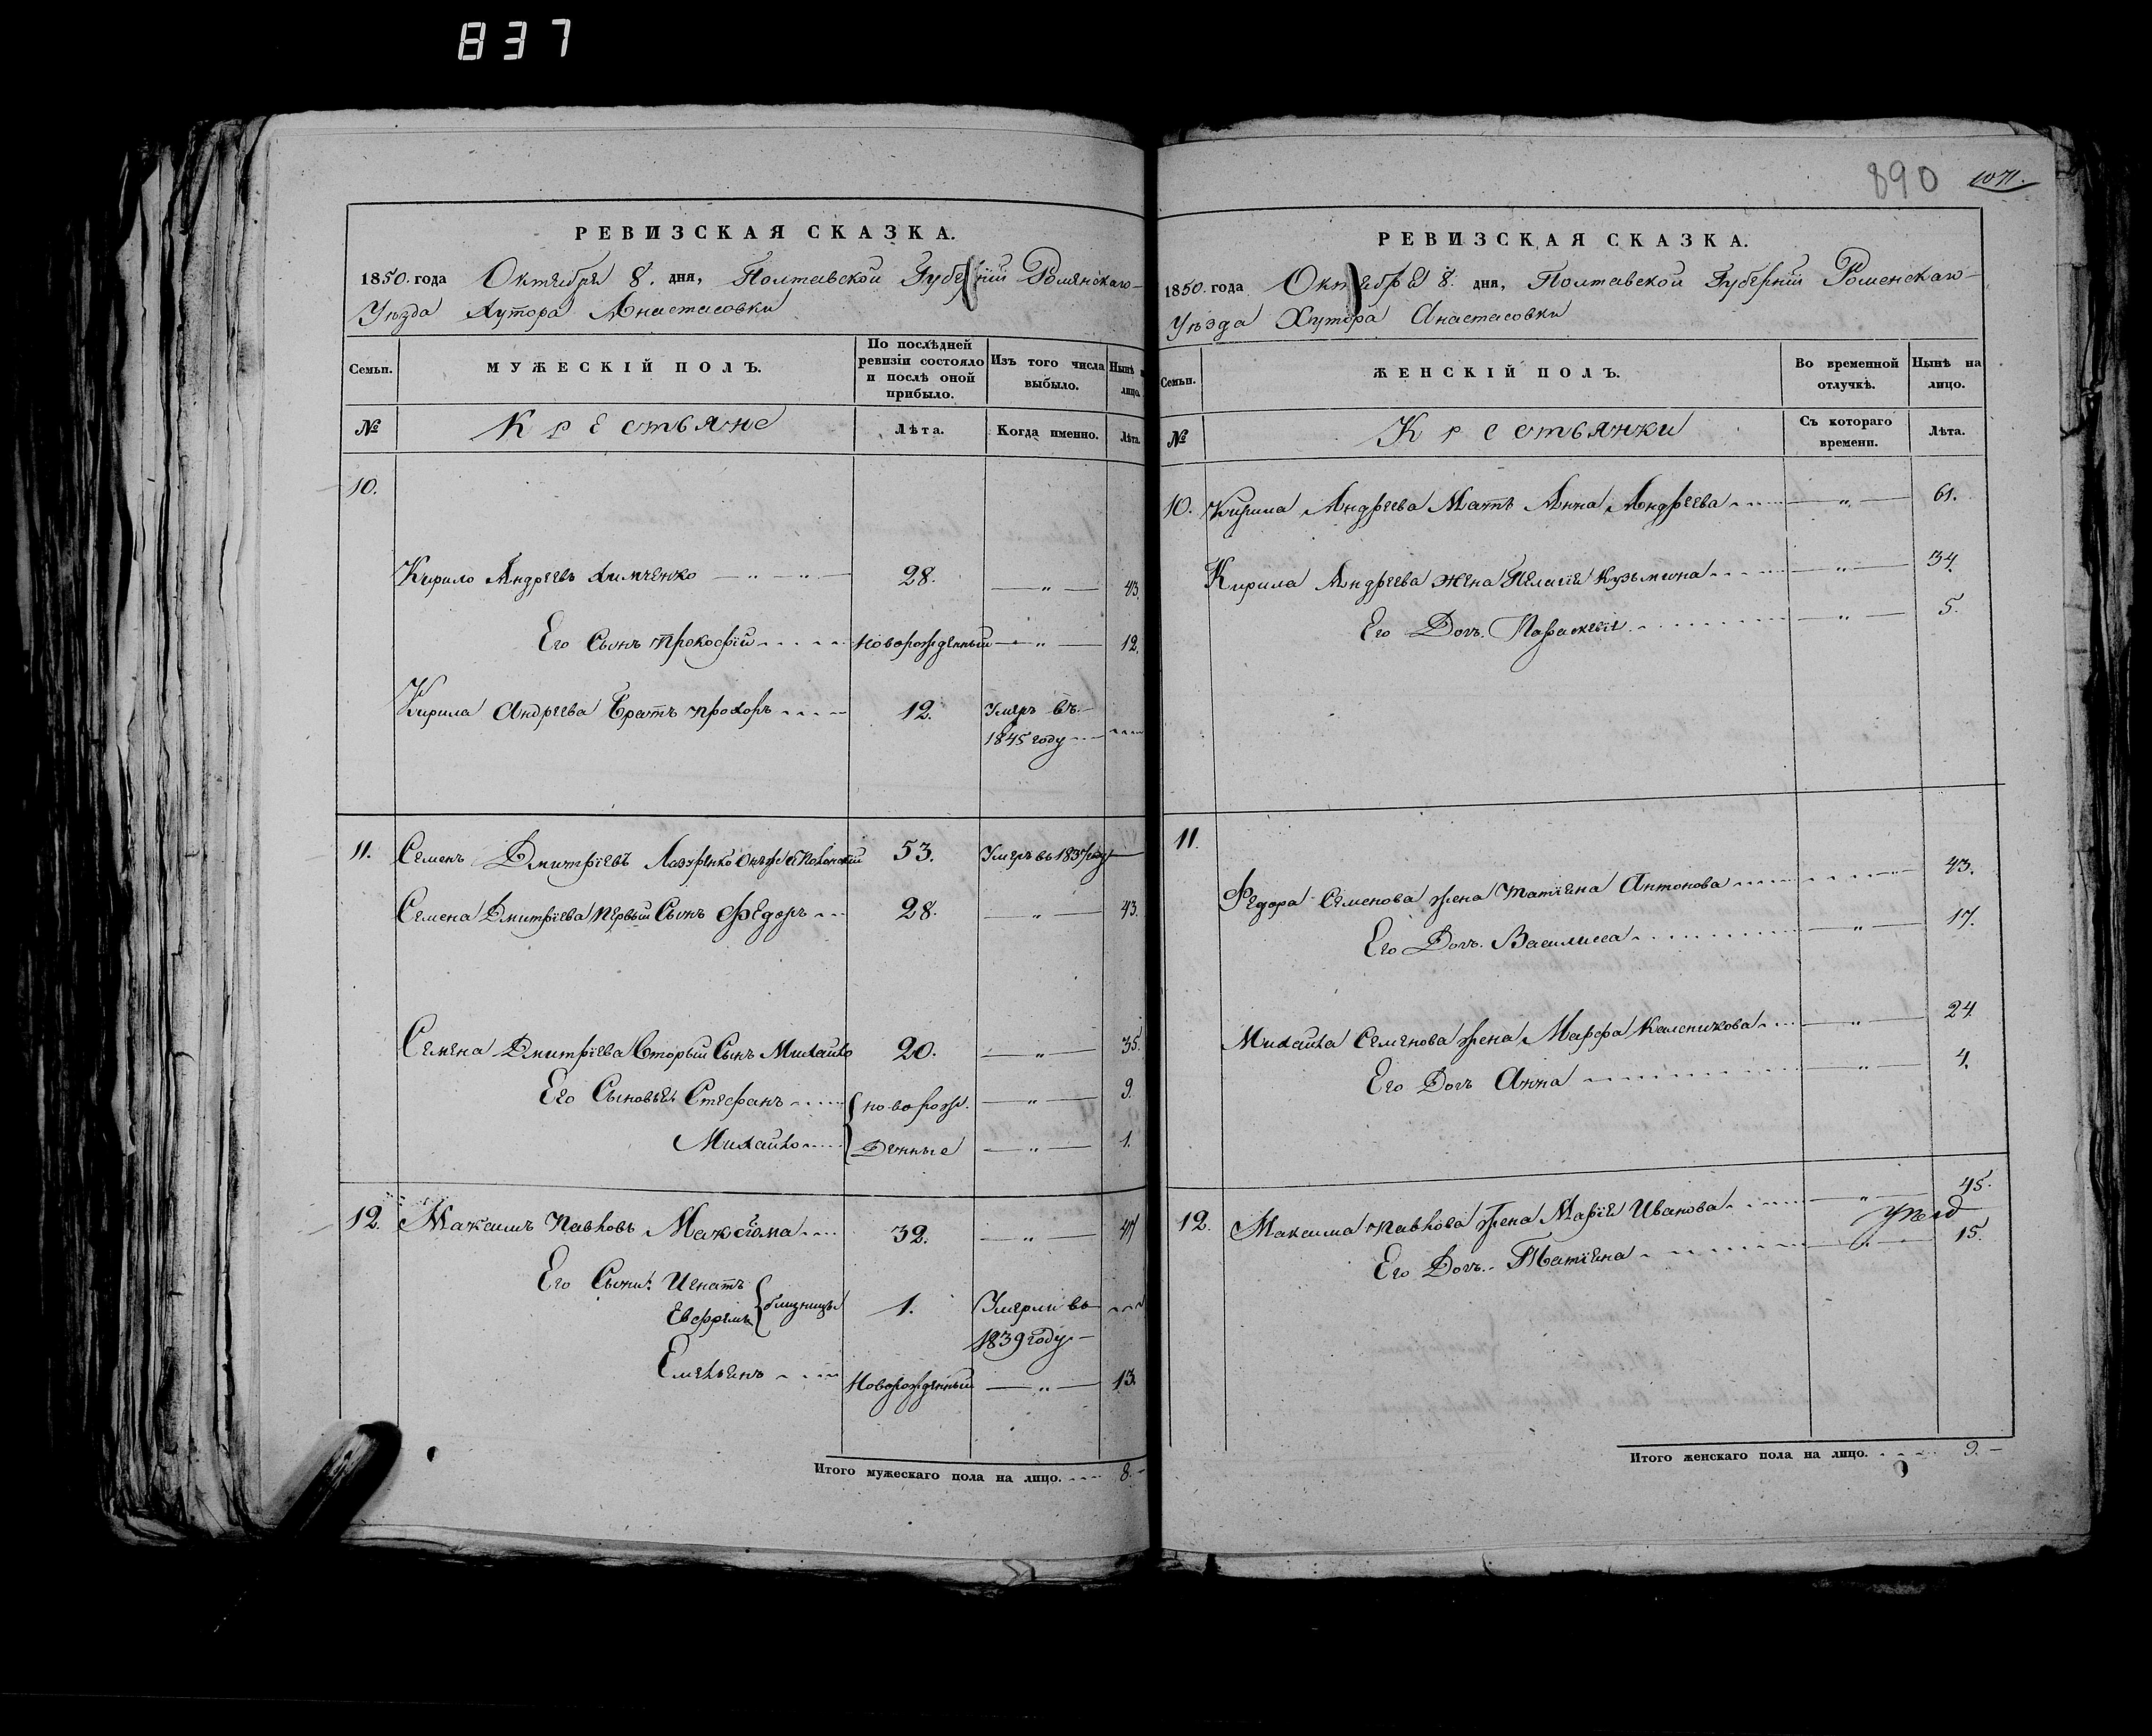 837
РЕВИЗСКАЯ СКАЗКА.
1850. года Октября 8. дня, Полтавской Губерніи Роменскаго
Уѣзда Хутора Анастасовки
Семьи. МУЖЕСКІЙ ПОЛЪ. По послѣдней ревизіи состояло и послѣ оной прибыло. Изъ того числа выбыло. Нынѣ на лицо.
№ Крестьяне Лѣта. Когда именно. Лѣта.
10.
Кирило Андреевъ Химченко — „ — „ — 28. — „ — 43.
Его Сынъ Прокофій новорожденный — „ — 12.
Кирила Андреева Братъ Прохоръ 12. Умеръ въ
1845 году
11. Семенъ Дмитріевъ Лазуренко 53. Умеръ въ 1837 году
Семена Дмитріева первый Сынъ Федоръ 28. — „ — 43.
Семена Дмитріева Вторый Сынъ Михайло 20. — „ — 35.
Его Сыновья Стефанъ новорож. — „ — 9.
Михайло денные — „ — 1.
12. Максимъ Павловъ 32. — „ — 47
Его Сыны: Игнатъ
Евфремъ близнецы 1. Умерли въ
1839 году
Емельянъ Новорожденный — „ — 13.
Итого мужескаго пола на лицо. 8.
890 1071.
РЕВИЗСКАЯ СКАЗКА.
1850. года Октября 8. дня, Полтавской Губерніи Роменскаго
Уѣзда Хутора Анастасовки
Семьи. ЖЕНСКІЙ ПОЛЪ. Во временной отлучкѣ. Нынѣ на лицо.
№ Крестьянки Съ котораго времени. Лѣта.
10. Кирила Андреева Мать Анна Андреева — „ — 61.
Кирила Андреева жена Пелагія Кузьмина — „ — 34.
Его Дочь. Параскевія — „ — 5.
11.
Федора Семенова жена Татіяна Антонова „ 43.
Его Дочь. Василиса — „ — 17.
Михайла Семенова жена Марфа Каленикова — „ — 24.
Его Дочь Анна — „ — 4.
12. Максима Павлова жена Марія Иванова — „ — 45.
Его Дочь. Татіяна — „ — 15.
Итого женскаго пола на лицо. 9.